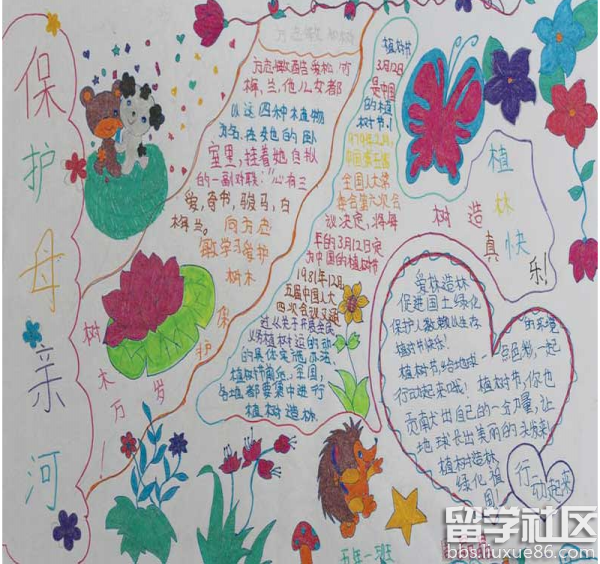 保
护
母
亲
河
方志敏和树
方志敏酷爱松,竹
梅,兰,他儿女都
以这四种植物
为名,在他的卧
室里,挂着她自拟
的一副对联:"心有三
爱,奇书,骏马,白
梅兰。向方志
敏学习爱护
树木
保
护
树
木
万
岁
!
植树节
3月12日
是中国
的植
树节!
1979年2月,
中国第五届
全国人大常
委会第六次会
议决定,将每
年的3月12日定
为中国的植树节
1981年12月,
五届中国人大
四次会议又通
过《关于开展全民
义务植树运的动
的具体实施办法
植树节前后,全国,
各地都要集中进行
植树造林
植
树 造 林
真 快
乐!
爱林造林
促进国土绿化
保护人数赖以生存 的环境
植树节快乐!
植树节,给地球一
一起
行动起来哦! 植树节,你也
贡献出自己的一点力量,让
地球长出美丽的头发来!
植树造林
绿化祖
国!
行
动起来
五年一班
留学社区
bbs.liuxue86.com